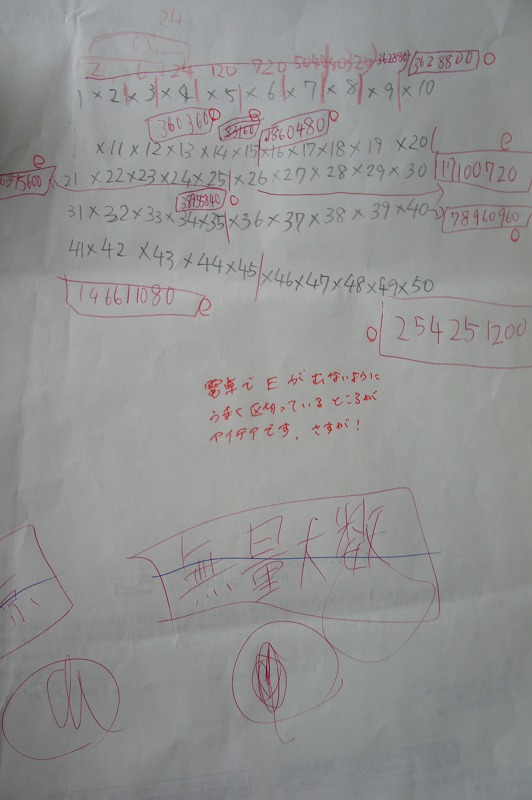 24
2 6 24 120 720 5040 40320 362880 3628800
1 × 2 × 3 × 4 × 5 × 6 × 7 × 8 × 9 × 10
360360 1860480
×11 × 12 × 13 × 14 × 15 × 16 × 17 × 18 × 19 × 20
17100720
21 × 22 × 23 × 24 × 25 × 26 × 27 × 28 × 29 × 30
38955840
31 × 32 × 33 × 34 × 35 × 36 × 37 × 38 × 39 × 40
78960960
41 × 42 × 43 × 44 × 45 × 46 × 47 × 48 × 49 × 50
146611080
254251200
電卓で E がでないように
うまく区切っているところが
アイデアです。さすが!
無量大数